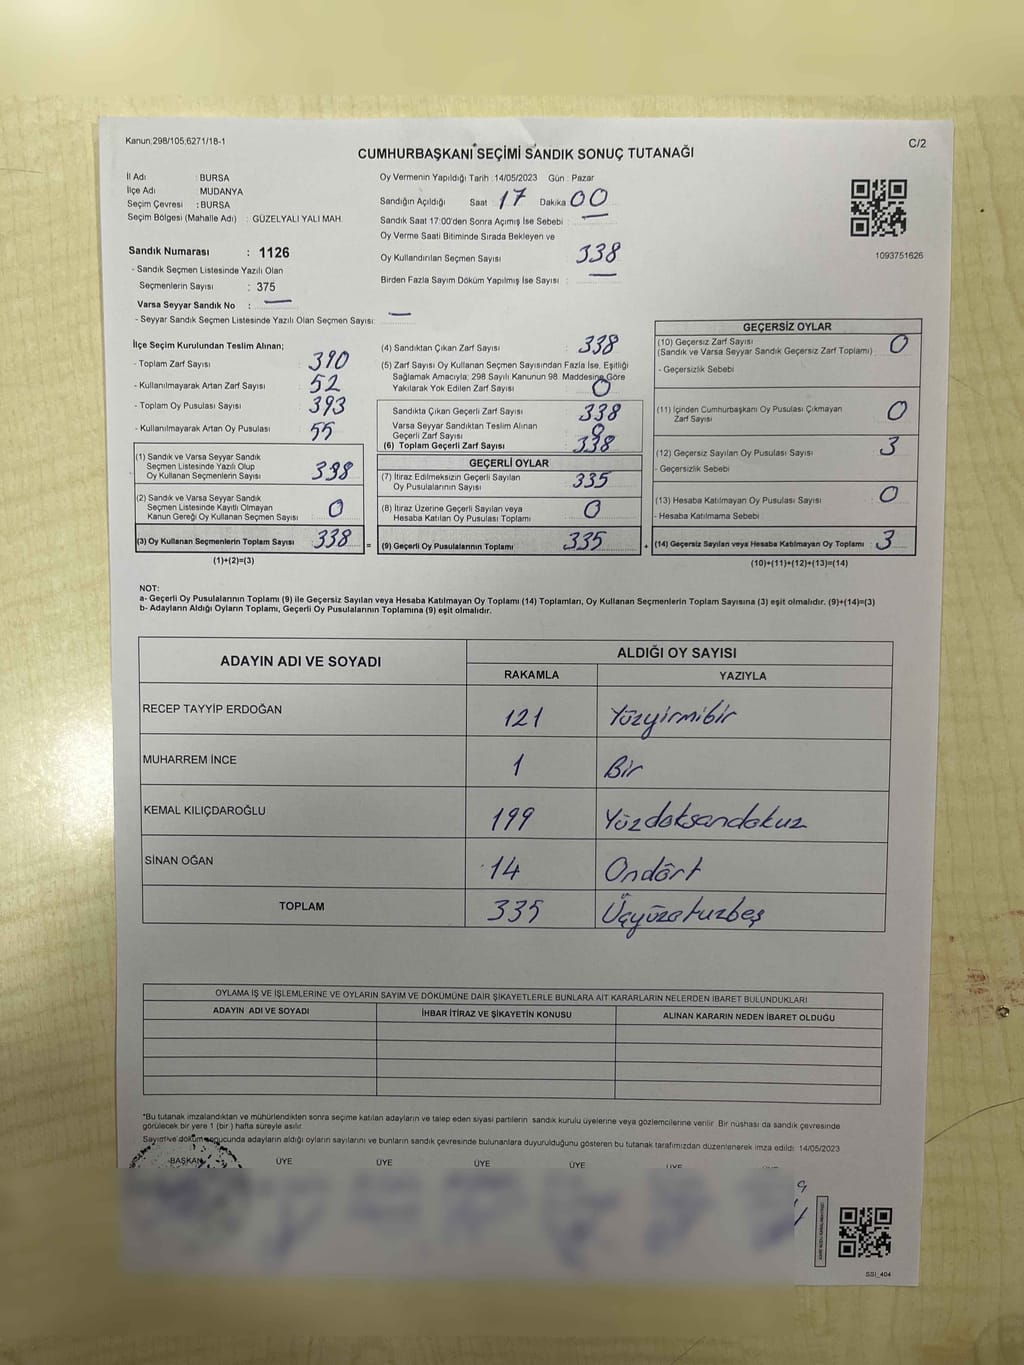 Kanun;298/105,6271/18-1
C/2
CUMHURBAŞKANI SEÇİMİ SANDIK SONUÇ TUTANAĞI
İl Adı : BURSA
İlçe Adı : MUDANYA
Seçim Çevresi : BURSA
Seçim Bölgesi (Mahalle Adı) : GÜZELYALI YALI MAH.
Oy Vermenin Yapıldığı Tarih :14/05/2023 Gün : Pazar
Sandığın Açıldığı Saat : 17 Dakika 00
Sandık Saat 17:00'den Sonra Açımış İse Sebebi : —
Oy Verme Saati Bitiminde Sırada Bekleyen ve
Oy Kullandırılan Seçmen Sayısı : 338
Birden Fazla Sayım Döküm Yapılmış İse Sayısı : —
1093751626
Sandık Numarası : 1126
- Sandık Seçmen Listesinde Yazılı Olan
Seçmenlerin Sayısı : 375
Varsa Seyyar Sandık No : —
- Seyyar Sandık Seçmen Listesinde Yazılı Olan Seçmen Sayısı: —
İlçe Seçim Kurulundan Teslim Alınan;
- Toplam Zarf Sayısı : 390
- Kullanılmayarak Artan Zarf Sayısı : 52
- Toplam Oy Pusulası Sayısı : 393
- Kullanılmayarak Artan Oy Pusulası : 55
(1) Sandık ve Varsa Seyyar Sandık
Seçmen Listesinde Yazılı Olup
Oy Kullanan Seçmenlerin Sayısı : 338
(2) Sandık ve Varsa Seyyar Sandık
Seçmen Listesinde Kayıtlı Olmayan
Kanun Gereği Oy Kullanan Seçmen Sayısı : 0
(3) Oy Kullanan Seçmenlerin Toplam Sayısı : 338
(1)+(2)=(3)
=
(4) Sandıktan Çıkan Zarf Sayısı : 338
(5) Zarf Sayısı Oy Kullanan Seçmen Sayısından Fazla İse, Eşitliği
Sağlamak Amacıyla; 298 Sayılı Kanunun 98. Maddesine Göre
Yakılarak Yok Edilen Zarf Sayısı : 0
Sandıkta Çıkan Geçerli Zarf Sayısı : 338
Varsa Seyyar Sandıktan Teslim Alınan
Geçerli Zarf Sayısı : 0
(6) Toplam Geçerli Zarf Sayısı : 338
GEÇERLİ OYLAR
(7) İtiraz Edilmeksizin Geçerli Sayılan
Oy Pusulalarının Sayısı : 335
(8) İtiraz Üzerine Geçerli Sayılan veya
Hesaba Katılan Oy Pusulası Toplamı : 0
(9) Geçerli Oy Pusulalarının Toplamı : 335
+
GEÇERSİZ OYLAR
(10) Geçersiz Zarf Sayısı
(Sandık ve Varsa Seyyar Sandık Geçersiz Zarf Toplamı) : 0
- Geçersizlik Sebebi
(11) İçinden Cumhurbaşkanı Oy Pusulası Çıkmayan
Zarf Sayısı : 0
(12) Geçersiz Sayılan Oy Pusulası Sayısı : 3
- Geçersizlik Sebebi
(13) Hesaba Katılmayan Oy Pusulası Sayısı : 0
- Hesaba Katılmama Sebebi
(14) Geçersiz Sayılan veya Hesaba Katılmayan Oy Toplamı : 3
(10)+(11)+(12)+(13)=(14)
NOT:
a- Geçerli Oy Pusulalarının Toplamı (9) ile Geçersiz Sayılan veya Hesaba Katılmayan Oy Toplamı (14) Toplamları, Oy Kullanan Seçmenlerin Toplam Sayısına (3) eşit olmalıdır. (9)+(14)=(3)
b- Adayların Aldığı Oyların Toplamı, Geçerli Oy Pusulalarının Toplamına (9) eşit olmalıdır.
ADAYIN ADI VE SOYADI
ALDIĞI OY SAYISI
RAKAMLA YAZIYLA
RECEP TAYYİP ERDOĞAN 121 Yüzyirmibir
MUHARREM İNCE 1 Bir
KEMAL KILIÇDAROĞLU 199 Yüzdoksandokuz
SİNAN OĞAN 14 Ondört
TOPLAM 335 Üçyüzotuzbeş
OYLAMA İŞ VE İŞLEMLERİNE VE OYLARIN SAYIM VE DÖKÜMÜNE DAİR ŞİKAYETLERLE BUNLARA AİT KARARLARIN NELERDEN İBARET BULUNDUKLARI
ADAYIN ADI VE SOYADI İHBAR İTİRAZ VE ŞİKAYETİN KONUSU ALINAN KARARIN NEDEN İBARET OLDUĞU
*Bu tutanak imzalandıktan ve mühürlendikten sonra seçime katılan adayların ve talep eden siyasi partilerin sandık kurulu üyelerine veya gözlemcilerine verilir. Bir nüshası da sandık çevresinde
görülecek bir yere 1 (bir ) hafta süreyle asılır.
Sayım ve döküm sonucunda adayların aldığı oyların sayılarını ve bunların sandık çevresinde bulunanlara duyurulduğunu gösteren bu tutanak tarafımızdan düzenlenerek imza edildi. 14/05/2023
BAŞKAN ÜYE ÜYE ÜYE ÜYE ÜYE
SSİ_404